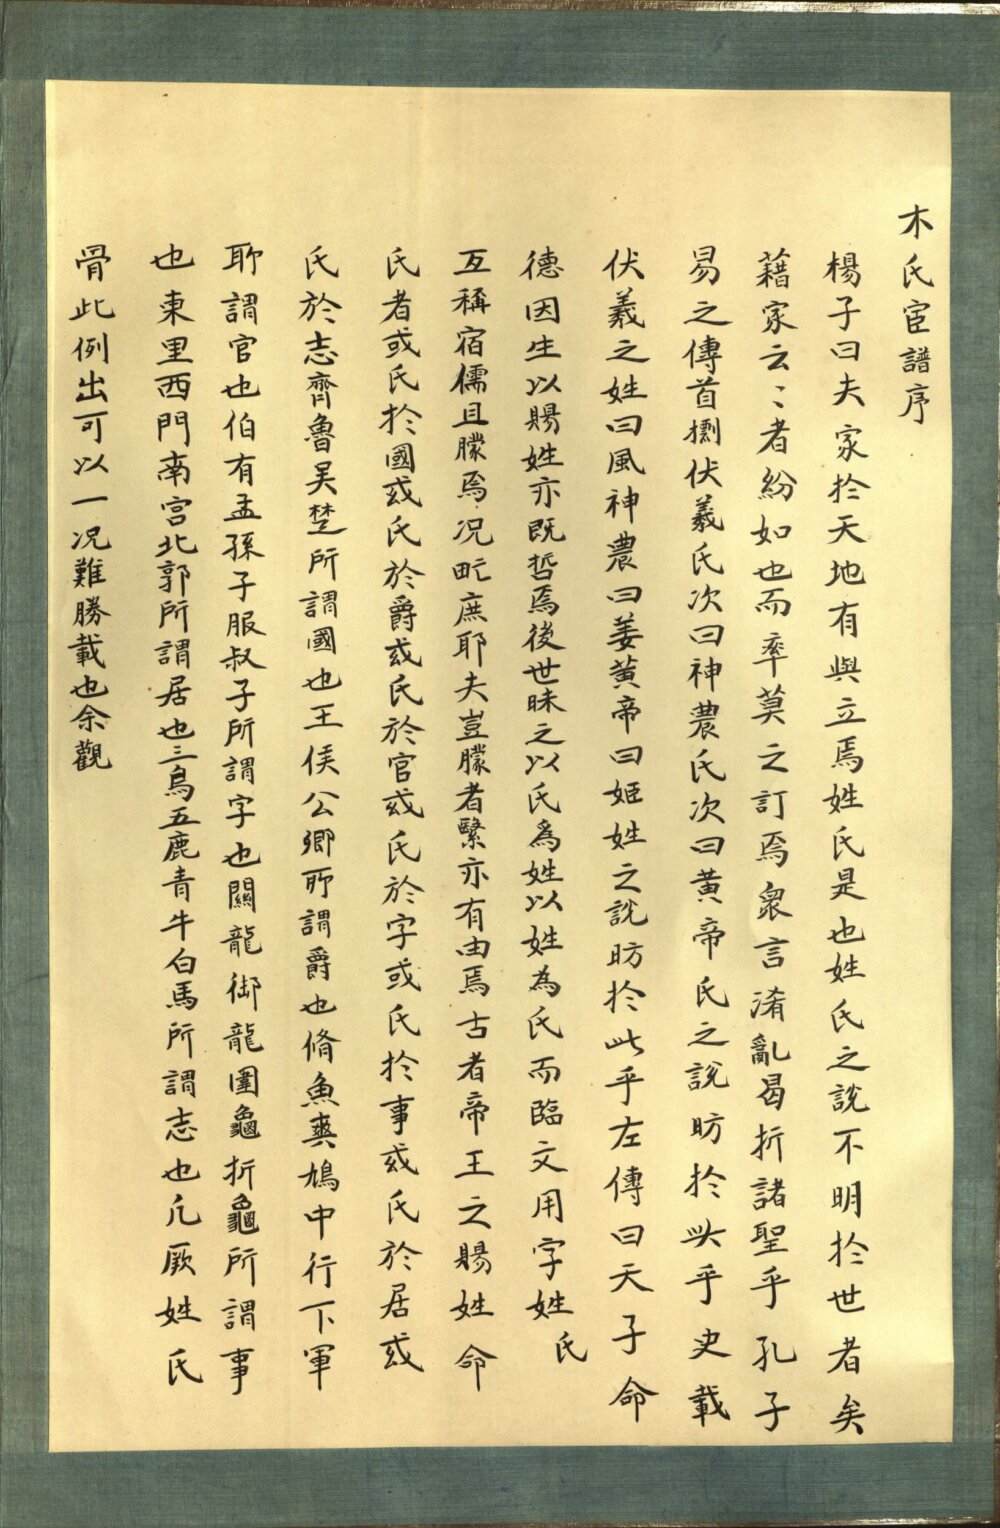 木氏宦譜序
楊子曰夫家於天地有與立焉姓氏是也姓氏之說不明於世者矣
藉家云〻者紛如也而率莫之訂焉衆言淆亂曷折諸聖乎孔子
易之傳首劄伏羲氏次曰神農氏次曰黃帝氏之說昉於此乎史載
伏羲之姓曰風神農曰姜黃帝曰姬姓之說昉於此乎左傳曰天子命
德因生以賜姓亦既哲焉後世昧之以氏為姓以姓為氏而臨文用字姓氏
互稱宿儒且朦焉况甿庶耶夫豈朦者繄亦有由焉古者帝王之賜姓命
氏者或氏於國或氏於爵或氏於官或氏於字或氏於事或氏於居或
氏於志齊魯吳楚所謂國也王侯公卿所謂爵也脩魚爽鳩中行下軍
所謂官也伯有孟孫子服叔子所謂字也關龍御龍圍龜折龜所謂事
也東里西門南宮北郭所謂居也三烏五鹿青牛白馬所謂志也凡厥姓氏
骨此例出可以一况難勝載也余觀